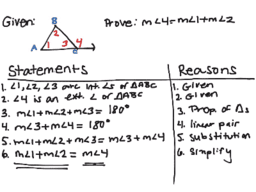 Given:
B
2
A 1 3 4 C
Prove: m∠4=m∠1+m∠2
Statements
Reasons
1. ∠1, ∠2, ∠3 are int. ∠s of △ABC
1. Given
2. ∠4 is an ext. ∠ of △ABC
2. Given
3. m∠1+m∠2+m∠3=180°
3. Prop of △s
4. m∠3+m∠4=180°
4. linear pair
5. m∠1+m∠2+m∠3=m∠3+m∠4
5. Substitution
6. m∠1+m∠2=m∠4
6. Simplify